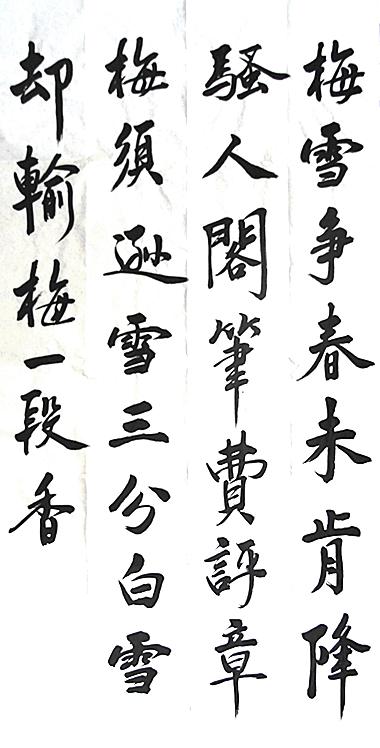 梅雪争春未肯降
騷人閣筆費評章
梅須遜雪三分白雪
却輸梅一段香